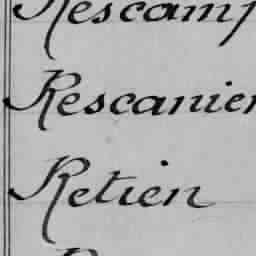 Rescamp
Rescanier
Retien